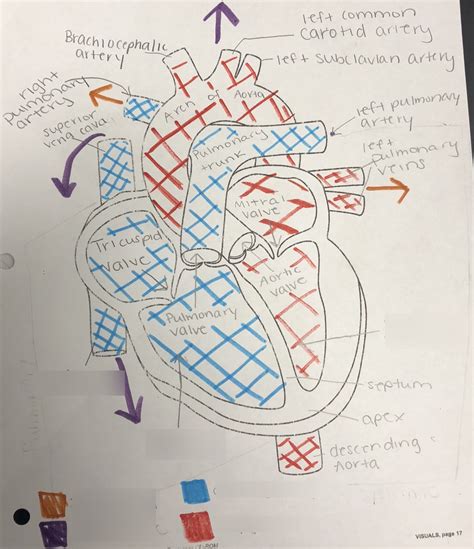 left common
carotid artery
Brachiocephalic
artery
left subclavian artery
right
Pulmonary
artery
Arch of Aorta
superior
vena cava
left pulmonary
artery
Pulmonary
trunk
left
Pulmonary
veins
Mitral
valve
Tricuspid
valve
Aortic
valve
Pulmonary
valve
septum
apex
descending
Aorta
VISUALS, page 17